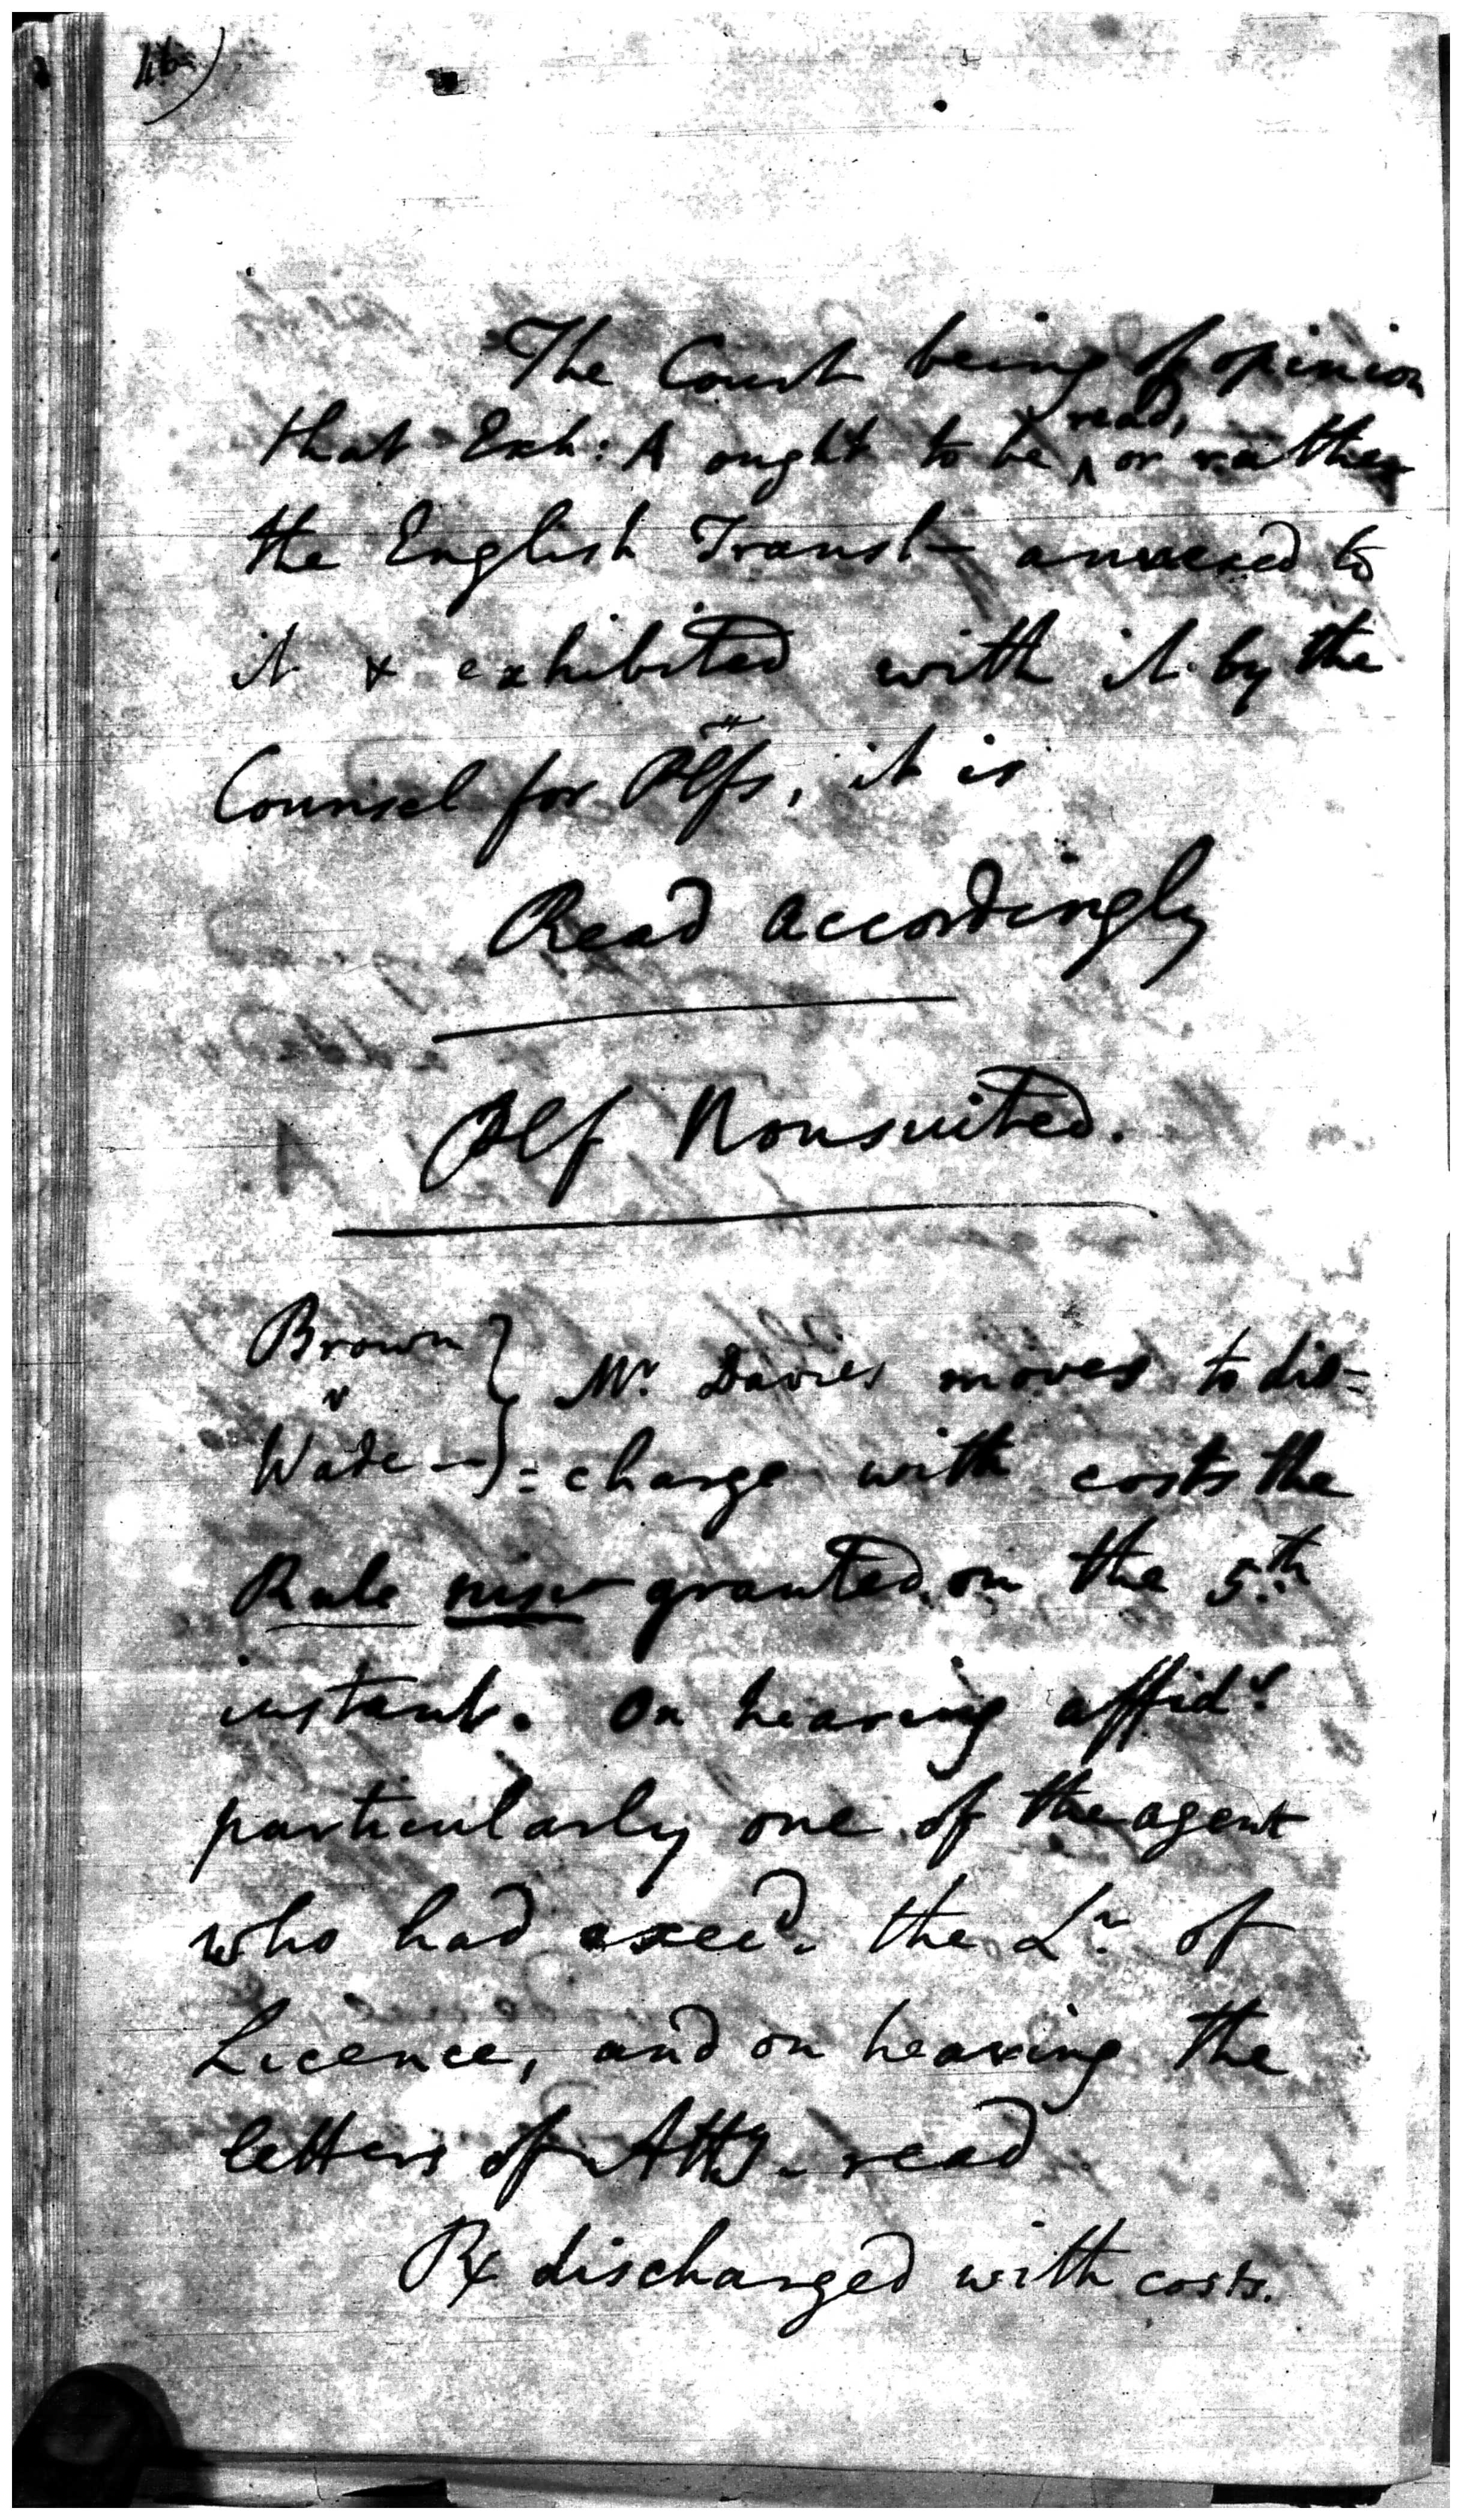 The Court being of opinion
that Exh: A ought to be read, or rather
the English Transl- annexed to
it & exhibited with it by the
Counsel for Plfs, it is
Read accordingly
Plf Nonsuited.
Brown
v
Wade - } Mr. Davies moves to dis=
=charge with costs the
Rule nisi granted on the 5.th
instant. On hearing affidt.
particularly one of the agent
who had exec.d the Lr. of
Licence, and on hearing the
letters of Atty. read
Rx discharged with costs.